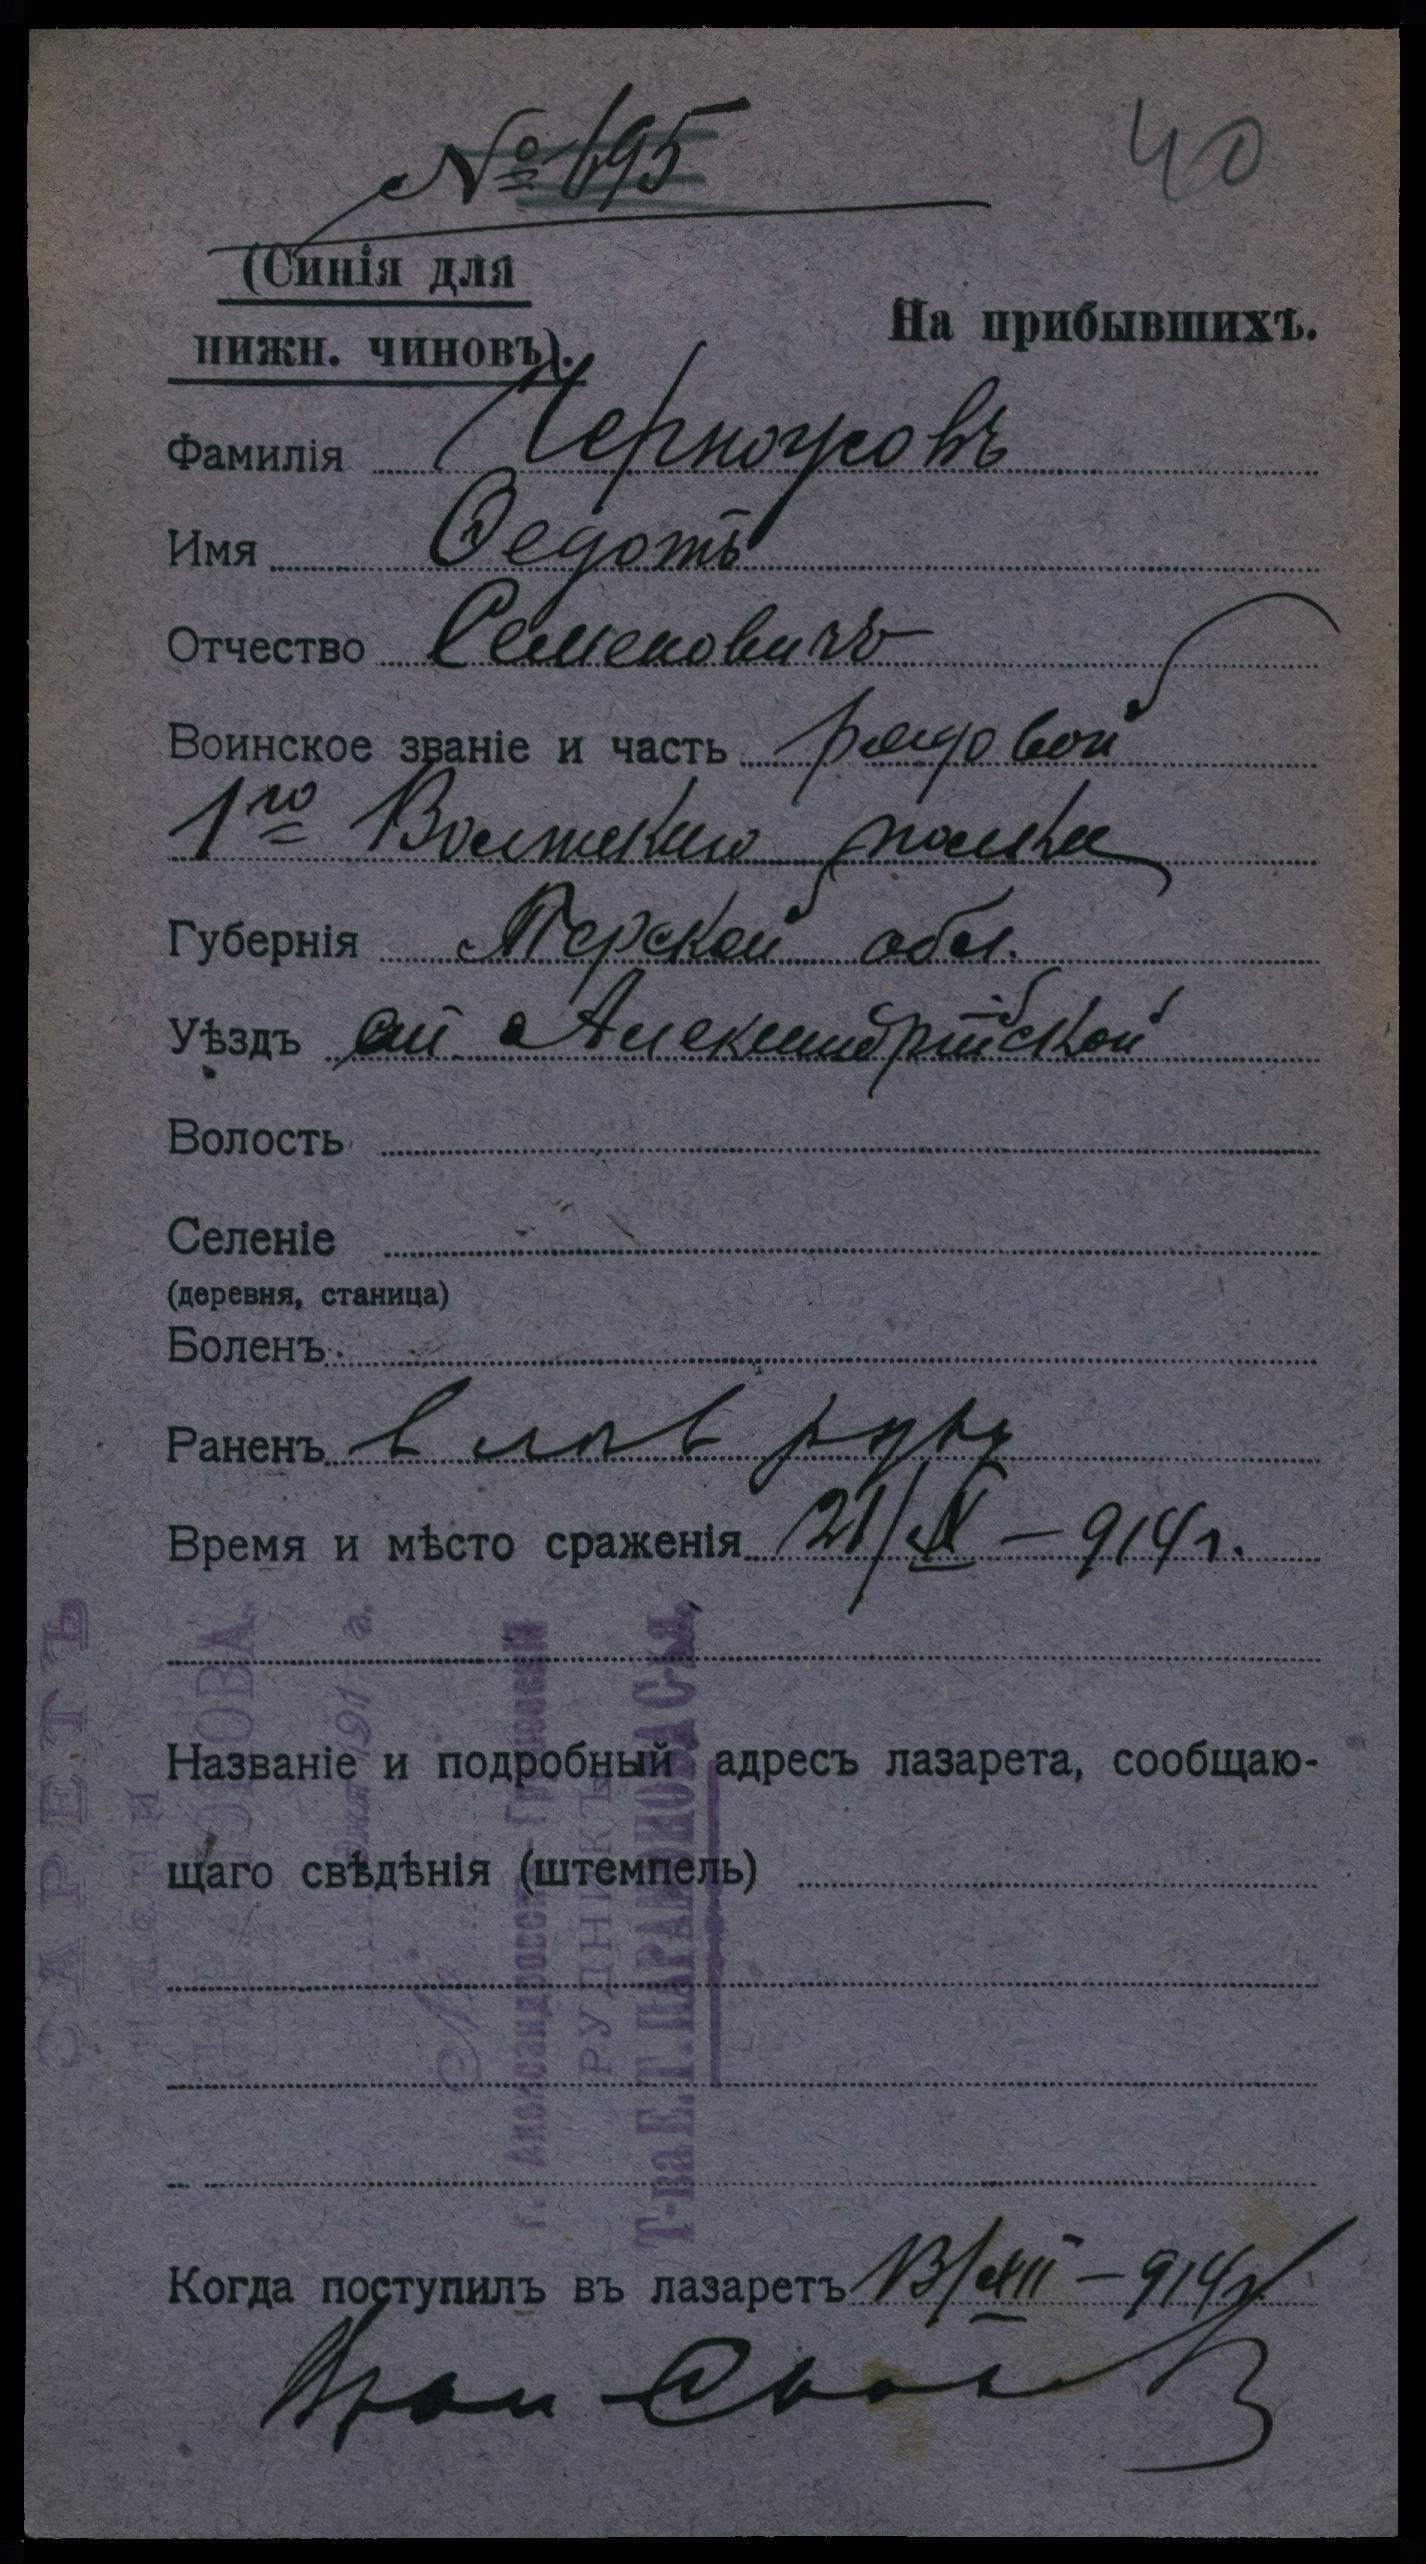 № 695
40
(Синія для
нижн. чиновъ).
На прибывшихъ.
Фамилія Черноусовъ
Имя Ѳедотъ
Отчество Семеновичъ
Воинское званіе и часть рядовой
1го Волжскаго полка
Губернія Терской обл.
Уѣздъ Александрійской
Волость
Селеніе
(деревня, станица)
Боленъ
Раненъ в лѣв руку
Время и мѣсто сраженія 21/XI – 914 г.
Названіе и подробный адресъ лазарета, сообщаю-
щаго свѣдѣнія (штемпель)
г. Александровскъ-Грушевскій
РУДНИКЪ
Т-ва Е. Т. ПАРАМОНОВА С-ья.
Когда поступилъ въ лазаретъ 13/XII – 914 г.
Врач